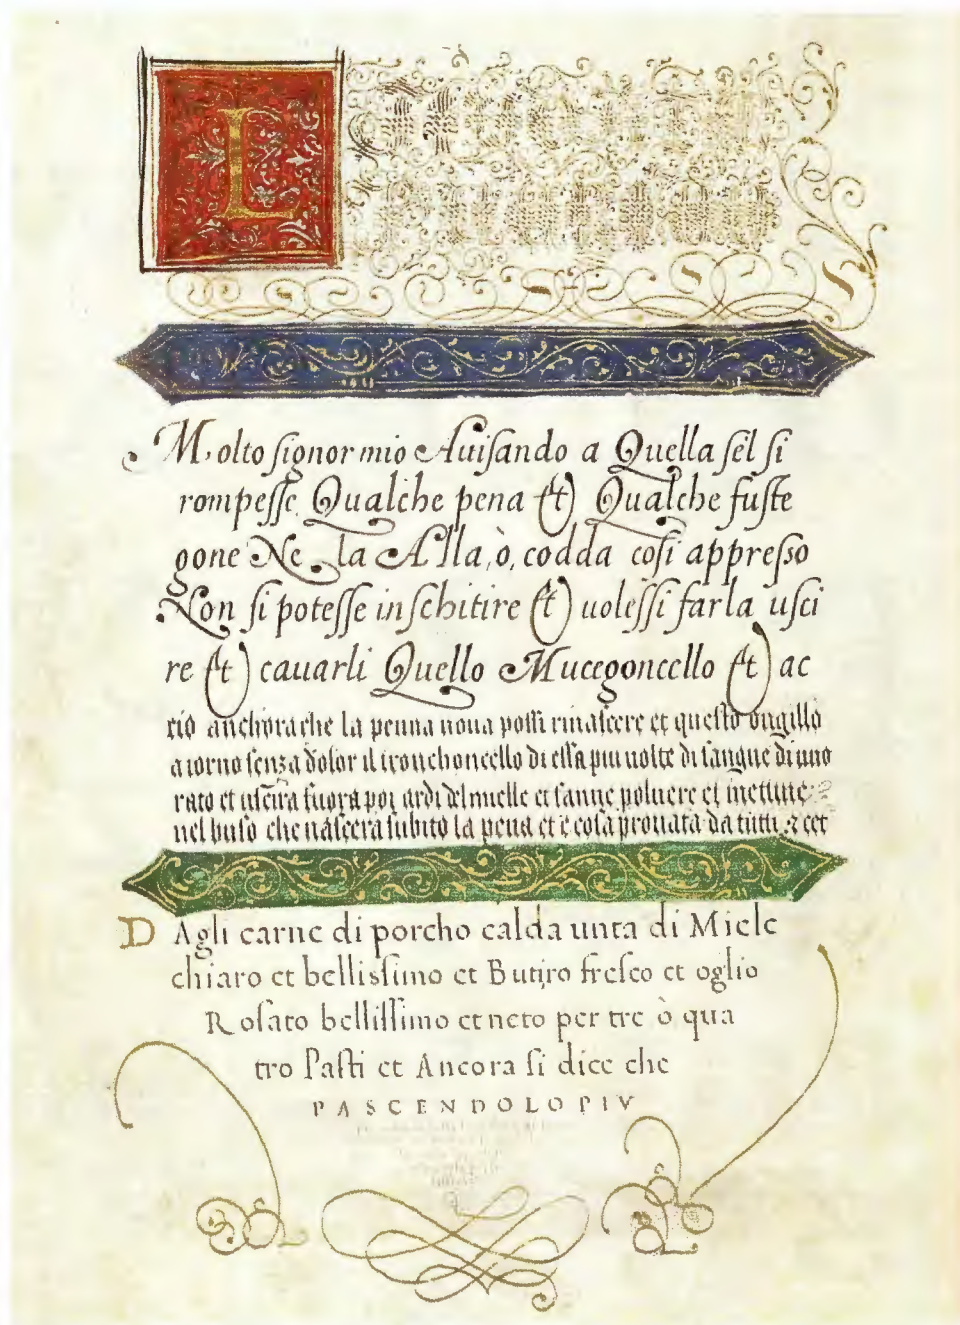 L
Molto ſignor mio Auiſando a Quella ſel ſi
rompeſſe Qualche pena et Qualche fuſte
gone Ne la Alla, ò, codda coſi appreſſo
Non ſi poteſſe inſchitire et uoleſſi farla uſci
re et cauarli Quello Mucegoncello et ac
tió anchora che la penna noua poſſi rinaſcere et queſto ongillo
atorno ſenza dolor il tronchoncello di eſſa piu uolte di ſangue di uno
rato et uſcira fuora poi ardi del muelle et fanne poluere et mettine
nel buſo che naſcera ſubito la pena et è coſa prouata da tutti & cet
D Agli carne di porcho calda unta di Miele
chiaro et belliſſimo et Butiro freſco et oglio
Roſato belliſſimo et neto per tre ò qua
tro Paſti et Ancora ſi dice che
PASCENDOLO PIV